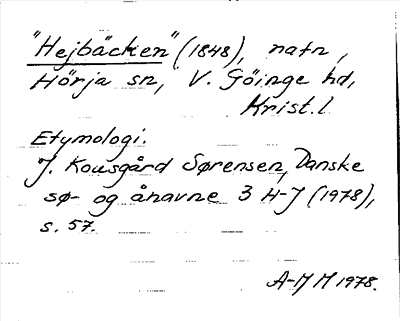 "Hejbäcken" (1848), natn,
Hörja sn, V. Göinge hd,
Krist.l.
Etymologi.
J. Kousgård Sørensen, Danske
sø- og ånavne 3 H-J (1978),
s. 57.
A-M M 1978.